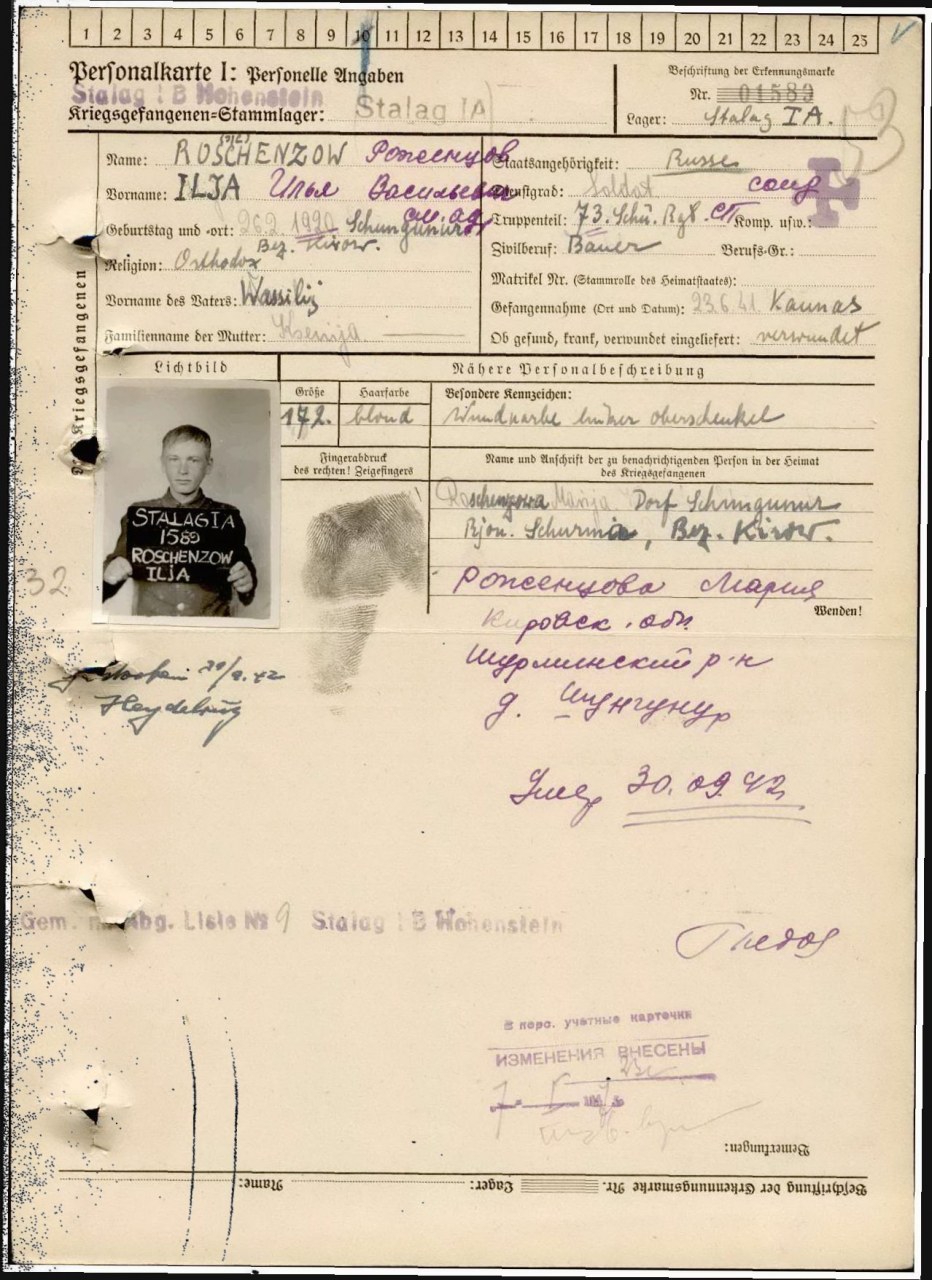 1 2 3 4 5 6 7 8 9 10 11 12 13 14 15 16 17 18 19 20 21 22 23 24 25
Personalkarte I: Personelle Angaben
Stalag I B Hohenstein
Kriegsgefangenen-Stammlager: Stalag IA
Beschriftung der Erkennungsmarke
Nr. 01589
Lager: Stalag IA.
53
Name: ROSCHENZOW Роженцов
Vorname: ILJA Илья Васильевич
Geburtstag und -ort: 26.2.1920 Schungunur
Bez. Kirow.
Religion: Orthodox
Vorname des Vaters: Wassilij
Familienname der Mutter: Ksenija
Staatsangehörigkeit: Russe
Dienstgrad: Soldat солд
Truppenteil: 73. Schü. Rgt. СП Komp. usw.:
Zivilberuf: Bauer Berufs-Gr.:
Matrikel Nr. (Stammrolle des Heimatstaates):
Gefangennahme (Ort und Datum): 23.6.41. Kaunas
Ob gesund, krank, verwundet eingeliefert: verwundet
Kriegsgefangenen
Lichtbild
Nähere Personalbeschreibung
Größe Haarfarbe Besondere Kennzeichen:
172. blond Wundnarbe linker oberschenkel
Fingerabdruck
des rechten! Zeigefingers
Name und Anschrift der zu benachrichtigenden Person in der Heimat
des Kriegsgefangenen
Roschenzowa Marija Dorf Schungunur
Rjon. Schurma, Bez. Kirow.
STALAG IA
1589
ROSCHENZOW
ILJA
32
Роженцова Мария
Wenden!
Кировск. обл
Шурминский р-н
д. Шунгунур
Heydekrug
Умер 30.09.42
Gem. Abg. Liste № 9 Stalag I B Hohenstein
В перс. учетные карточки
ИЗМЕНЕНИЯ ВНЕСЕНЫ
Bemerkungen:
Beschriftung der Erkennungsmarke Nr. Lager: Name: